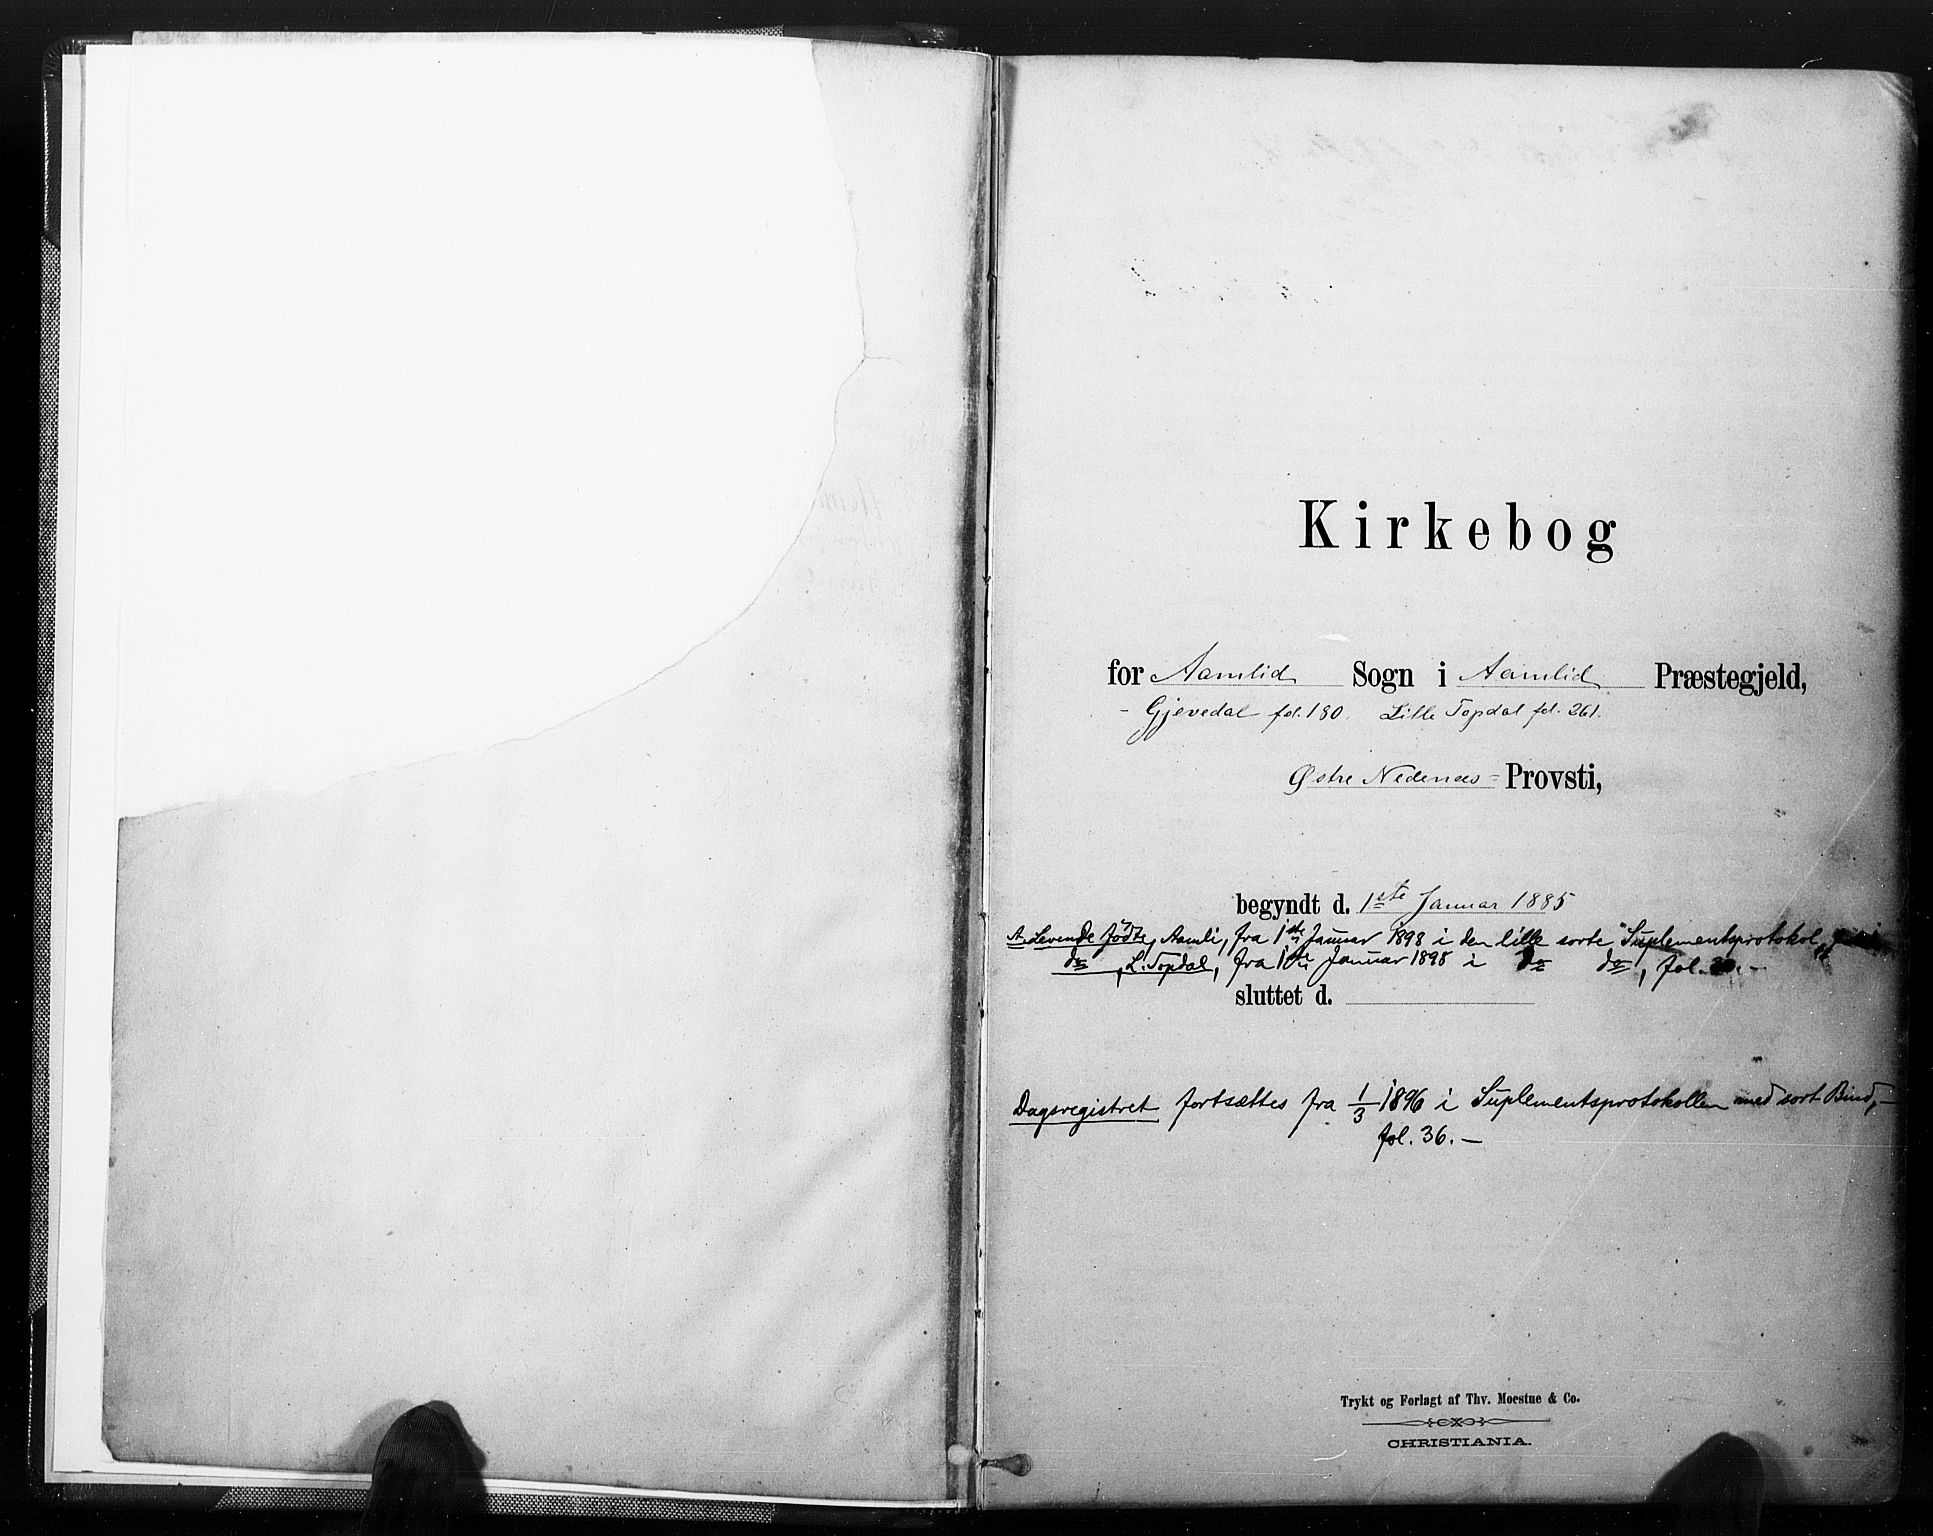 Kirkebog
for Aamlid Sogn i Aamlid Præstegjeld,
- Gjevedal fol. 180. Lille Topdal fol. 261.
Østre Nedenæs = Provsti,
begyndt d. 1ste Januar 1885
A. Levende fødte, Aamli, fra 1ste Januar 1898 i den lille sorte Suplementsprotokol,
do, L. Topdal, fra 1ste Januar 1898 i do do, fol.
sluttet d.
Dagsregistret fortsættes fra 1/3 1896 i Suplementsprotokollen med sort Bind,-
fol. 36. -
Trykt og Forlagt af Thv. Moestue & Co.
CHRISTIANIA.